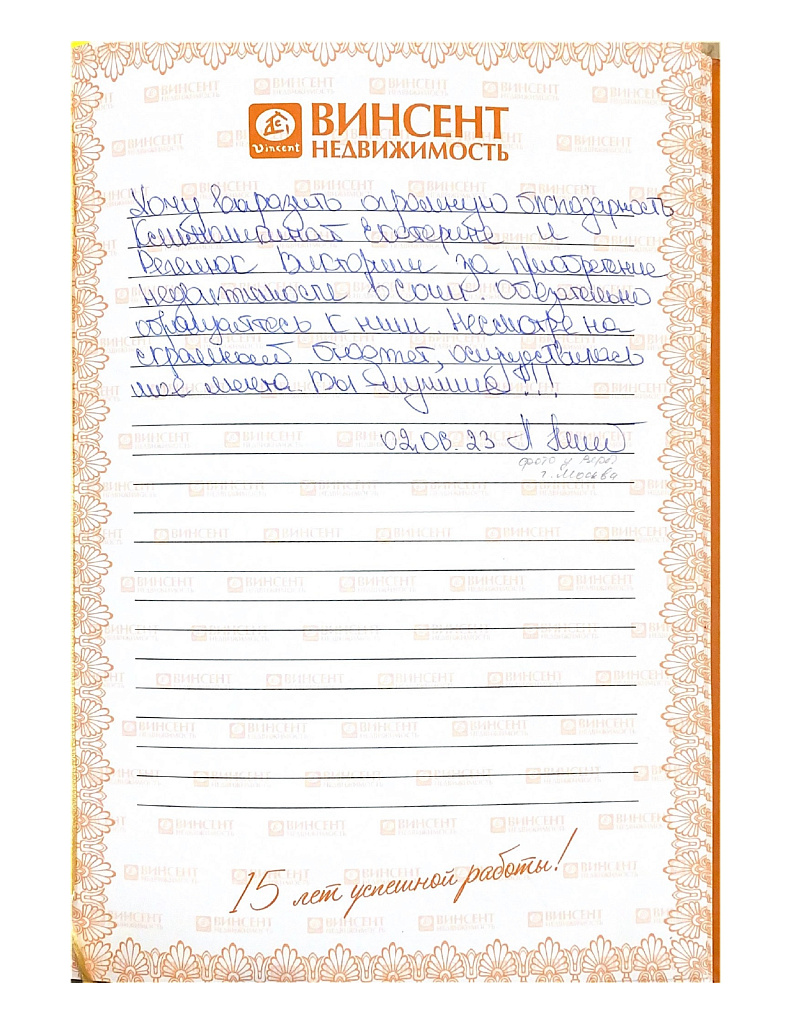 Vincent
ВИНСЕНТ
НЕДВИЖИМОСТЬ
Хочу выразить огромную благодарность
Екатерине и
Виктории за приобретение
недвижимости в Сочи. Обязательно
обращайтесь к ним. Несмотря на
скромный бюджет, осуществилась
моя мечта. Вы лучшие!!!
02.08.23
фото у
г. Москва
15 лет успешной работы!